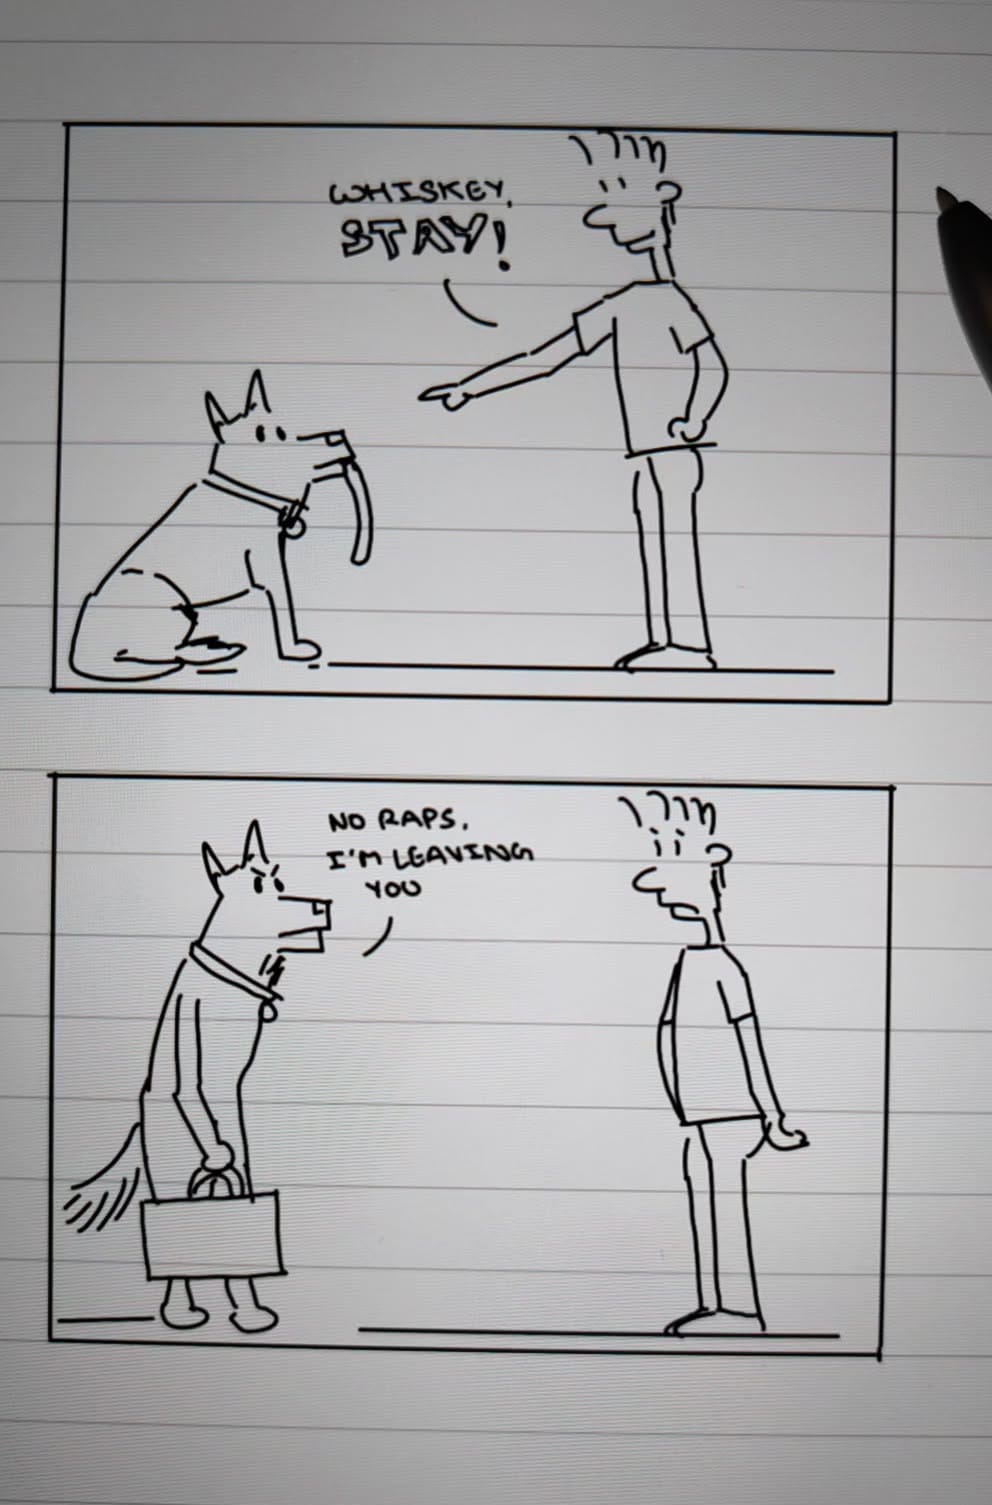 WHISKEY,
STAY!
NO RAPS,
I'M LEAVING
YOU